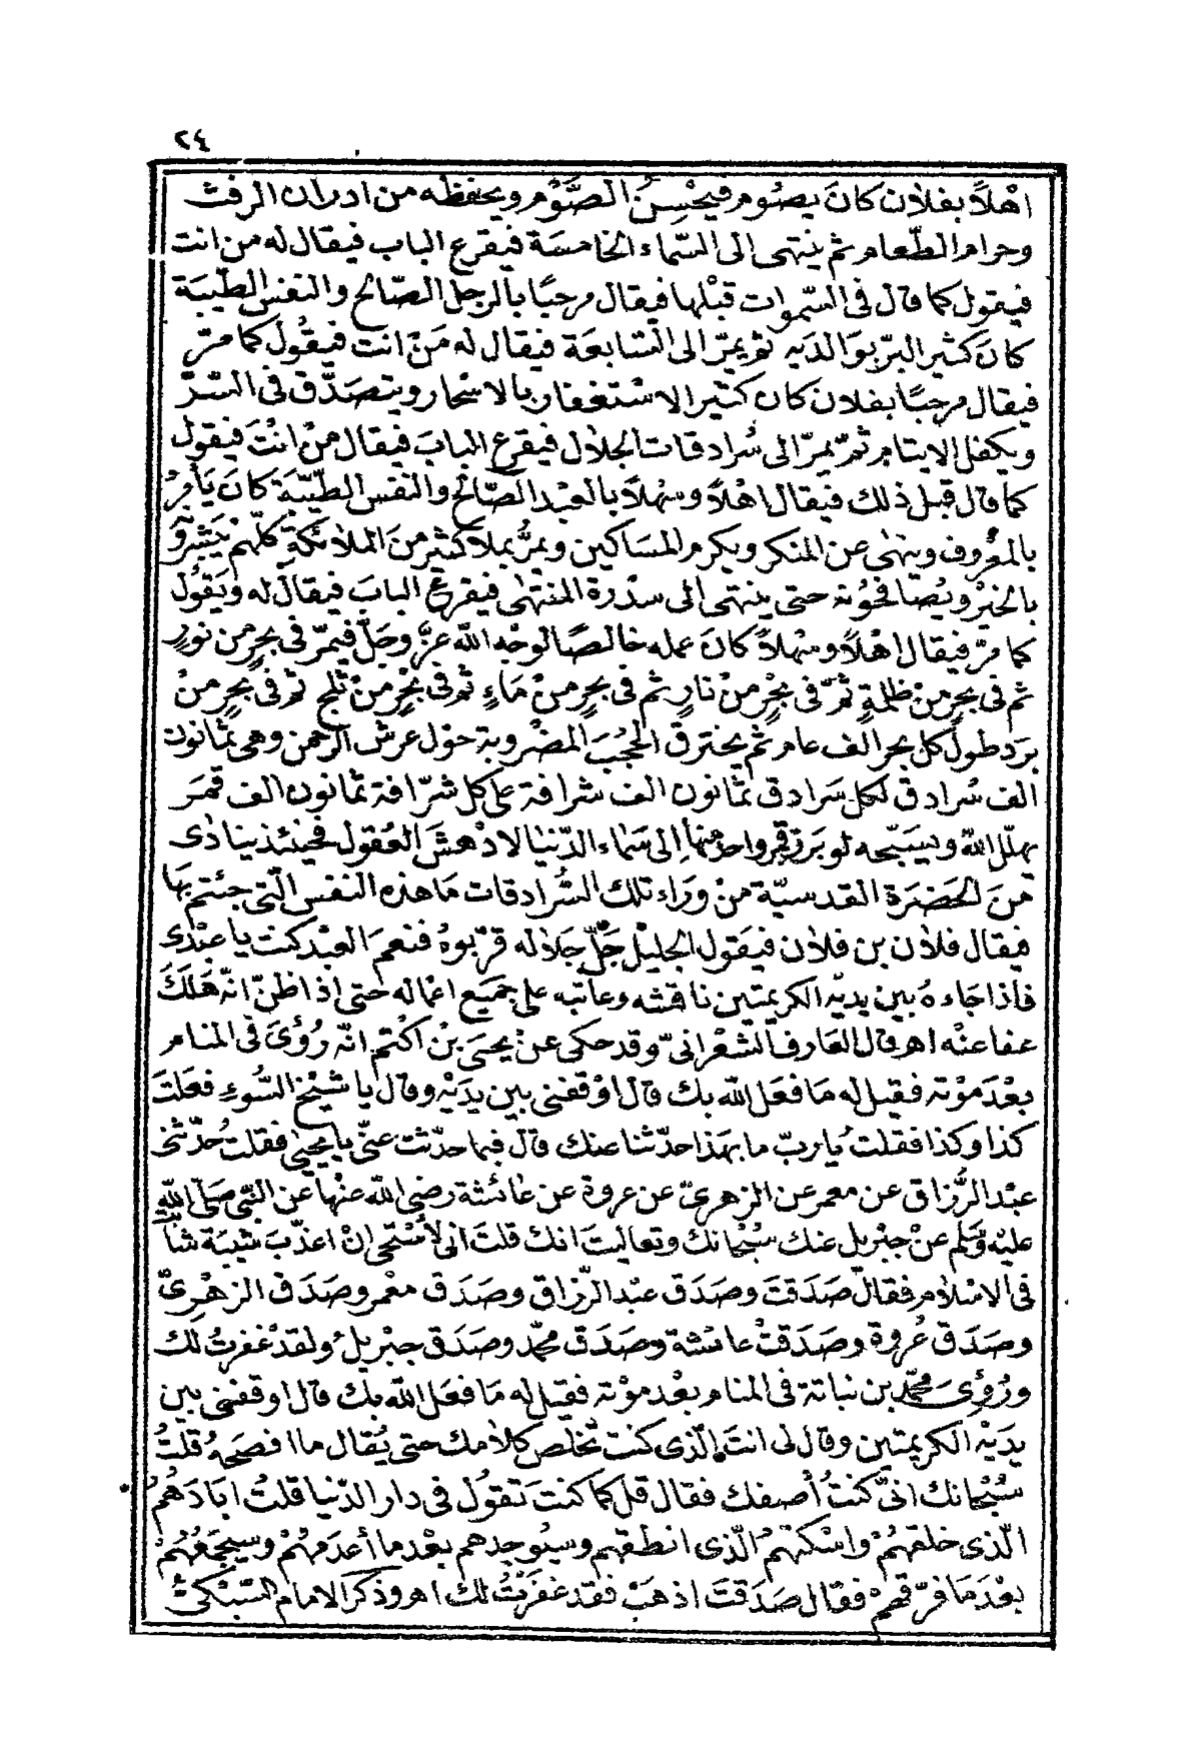 ٢٤
اهْلاً بفلان كانَ يصُوم فيحْسِنُ الصَّوْم ويحفظه من ادران الرفث
وحرام الطّعام ثم ينتهى الى السّماء الخامسَة فيقرع الباب فيقال له من انت
فيقول كما قال فى السّموات قبْلها فيقال مرحبًا بالرجل الصّالح والنفس الطّيّبَة
كانَ كثير البرّ بوَالدَيه ثم يمرّ الى السّابعَة فيقال له مَنْ انت فيقُول كما مرّ
فيقال مرحبًا بفلان كان كثير الاسْتغفار بالاسْحار ويتصَدّق فى السّرّ
ويكفل الايتام ثمّ يمرّ الى سُرادقات الجلال فيقرع البابَ فيقال منْ انْتَ فيقول
كما قال قبل ذلك فيقال اهْلاً وسهْلاً بالعبْد الصّالح والنفس الطيّبَة كانَ يَأمُرُ
بالمعْروف وينهٰى عن المنكر ويكرم المسَاكين ويمرُّ بملأ كثير منَ الملائكةِ كلّهم يبَشّرُونَهُ
بالخيْرِ ويُصَافحُونهُ حتى ينتهى الى سدْرة المنتهٰى فيقرعُ البابَ فيقال له ويَقوُل
كما مرّ فيقال اهْلاً وسهْلاً كانَ عمله خالصًا لوجْهِ اللّه عزّ وجَلّ فيمرّ فى بحرٍ من نورٍ
ثم فى بحرٍ منْ ظلمةٍ ثمّ فى بحْرٍ منْ نارٍ ثم فى بحرٍ منْ مَاءٍ ثم فى بحْرٍ منْ ثلجٍ ثم فى بحرٍ منْ
برَد طولُ كل بحر الف عام ثم يخترق الحجُبَ المضْروبة حوْل عرش الرحمن وهى ثمَانون
الف سُرادق لكل سَرادق ثمانون الف شرافة على كل شرّافة ثمانون الف قمَر
يهلّل اللّه ويسَبّحه لو بَرز قمر واحد منها إلى سَماء الدّنيا لادْهشَ العُقول فحينئذ ينادٰى
منَ الحَضرَة القدسيّة منْ ورَاء تلك السُّرادقات مَا هذه النفس الّتى جئتم بهَا
فيقال فلان بن فلان فيقول الجليْل جَلّ جَلاله قرّبوهُ فنعم العبْد كنت يا عبْدى
فاذا جَاءهُ بين يديْه الكريمتين ناقشه وعاتبه على جميع اعماله حتى اذا ظنّ انّه هَلَكَ
عفا عنْه اهـ قال العَارف الشعْرانىّ وقد حكى عنْ يحيَى بْن اكْثم انّه رُؤىَ فى المنام
بعْدَ موْته فقيل له مَا فعَل اللّه بك قال اوْقفنى بين يدَيْه وقال يا شيْخ السُّوءِ فعَلتَ
كذا وكذا فقلت يا ربّ ما بهَذا حدّثنا عنك قال فبما حدّثت عنّى يا يحيٰى فقلت حُدّثنى
عبْد الرّزاق عن معمر عن الزهرىّ عن عروة عن عائشة رضى اللّه عنْها عن النّبىّ صَلّى اللّه
عليْه وسَلم عنْ جبْريل عنك سبْحانك وتعاليت انك قلتَ انى لأسْتحى انْ اعذّبَ شيبة شابت
فى الاسْلام فقالَ صَدَقتَ وصَدَق عبْد الرّزاق وصَدَق معْمر وصَدَق الزهْرىّ
وصَدَق عُروة وصَدَقتْ عائشة وصَدَق محمّد وصَدَق جبْريل ولقدْ غفرتُ لك
ورُؤىَ محمّد بن نباتة فى المنام بعْد موْته فقيل له مَا فعَل اللّه بك قال اوقفنى بين
يدَيْه الكريمتين وقال لى انتَ الّذى كنت تخلّص كلامك حتى يُقال ما افصَحهُ قلتُ
سُبْحانك انّى كنتُ أصفك فقال قل كما كنت تقوُل فى دار الدّنيا قلتُ ابَادَهُم
الّذى خلقهُمْ واسْكتهُمْ الّذى انطقهم وسيُوجدهم بعْد ما أعدمَهُمْ وسيجْمعُهُمْ
بعْدَ مَا فرّقهمْ فقال صَدَقتَ اذهَبْ فقد غفَرْتُ لك اهـ وذكر الامام السّبْكىّ